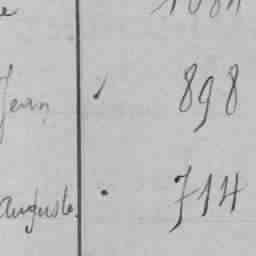 Jean 898
Auguste. 714